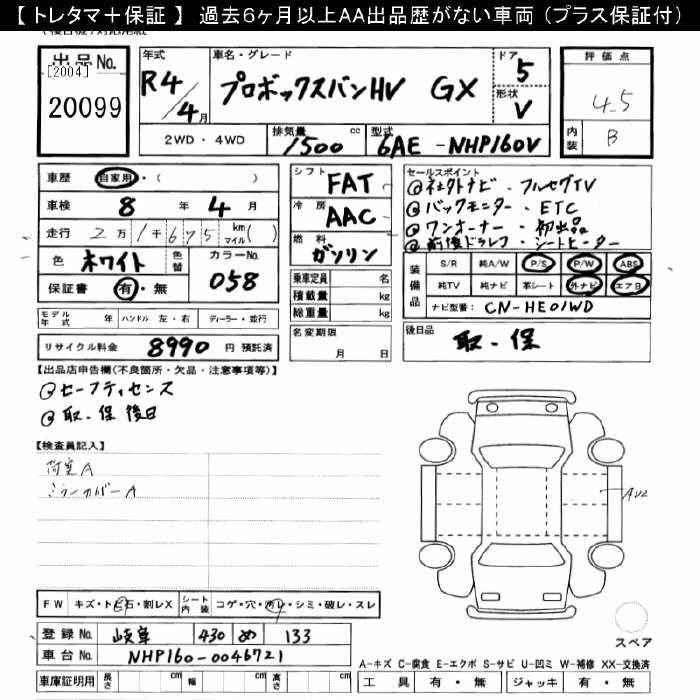 【 トレタマ＋保証 】 過去6ヶ月以上AA出品歴がない車両（プラス保証付）
出品No.
[2004]
20099
年式
R4/4月
車名・グレード
プロボックスバンHV GX
ドア
5
形状
V
2WD・4WD
排気量
1500 cc
型式
6AE-NHP160V
評価点
4.5
内装
B
車歴 自家用・( )
車検 8年 4月
走行 2万1千675 km マイル( )
色 ホワイト 色替
カラーNo. 058
保証書 有・無
モデル年式 年 ハンドル 左・右 ディーラー・並行
リサイクル料金 8990 円 預託済
シフト FAT
冷房 AAC
燃料 ガソリン
乗車定員 名
積載量 kg
総重量 kg
名変期限
月 日
セールスポイント
@社外ナビ・フルセグTV
@バックモニター・ETC
@ワンオーナー・初出品
@前後ドラレコ・シートヒーター
装備品
S/R 純A/W P/S P/W ABS
純TV 純ナビ 革シート 外ナビ エアB
ナビ型番: CN-HE01WD
後日品
取・保
【出品店申告欄(不良箇所・欠品・注意事項等)】
@セーフティセンス
@取・保後日
【検査員記入】
荷室A
ミラーカバーA
AU2
FW キズ・トビ石・割レX
シート内装 コゲ・穴・汚レ・シミ・破レ・スレ
スペア
登録No. 岐阜 430 め 133
車台No. NHP160-0046721
車庫証明用 長さ cm 幅 cm 高さ cm
A-キズ C-腐食 E-エクボ S-サビ U-凹ミ W-補修 XX-交換済
工具 有・無 ジャッキ 有・無